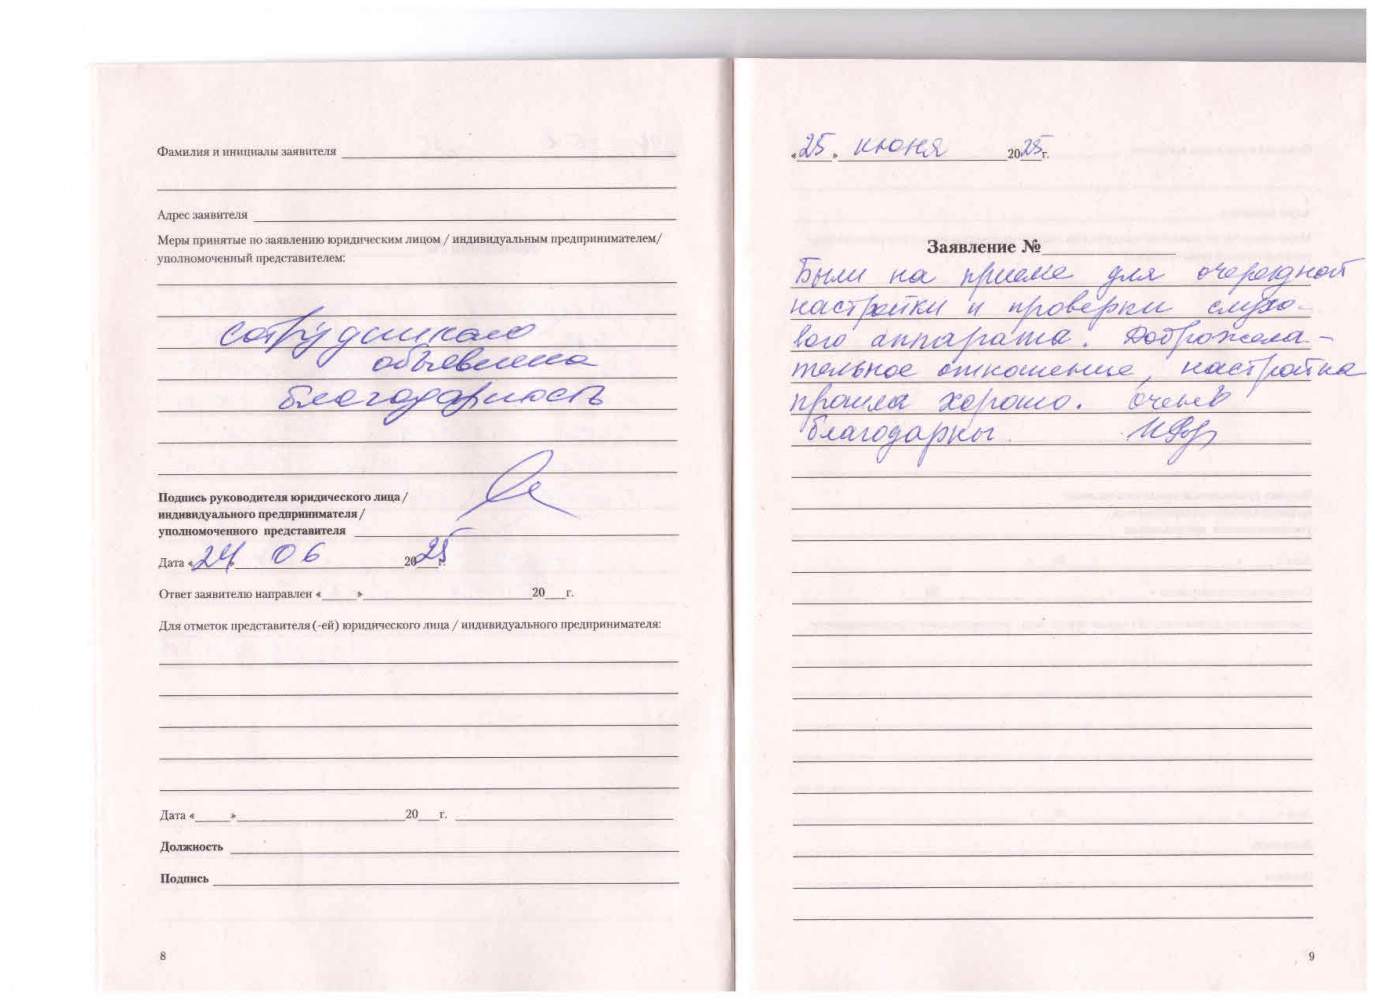 Фамилия и инициалы заявителя
Адрес заявителя
Меры принятые по заявлению юридическим лицом / индивидуальным предпринимателем/
уполномоченный представителем:
сотрудникам
объявлена
благодарность
Подпись руководителя юридического лица /
индивидуального предпринимателя /
уполномоченного представителя
Дата «24» 06 2025 г.
Ответ заявителю направлен «     »     20   г.
Для отметок представителя (-ей) юридического лица / индивидуального предпринимателя:
Дата «     »     20   г.
Должность
Подпись
8
«25» июня 2025г.
Заявление №
Были на приеме для очередной
настройки и проверки слухо-
вого аппарата. Доброжела-
тельное отношение, настройка
прошла хорошо. очень
благодарны
9